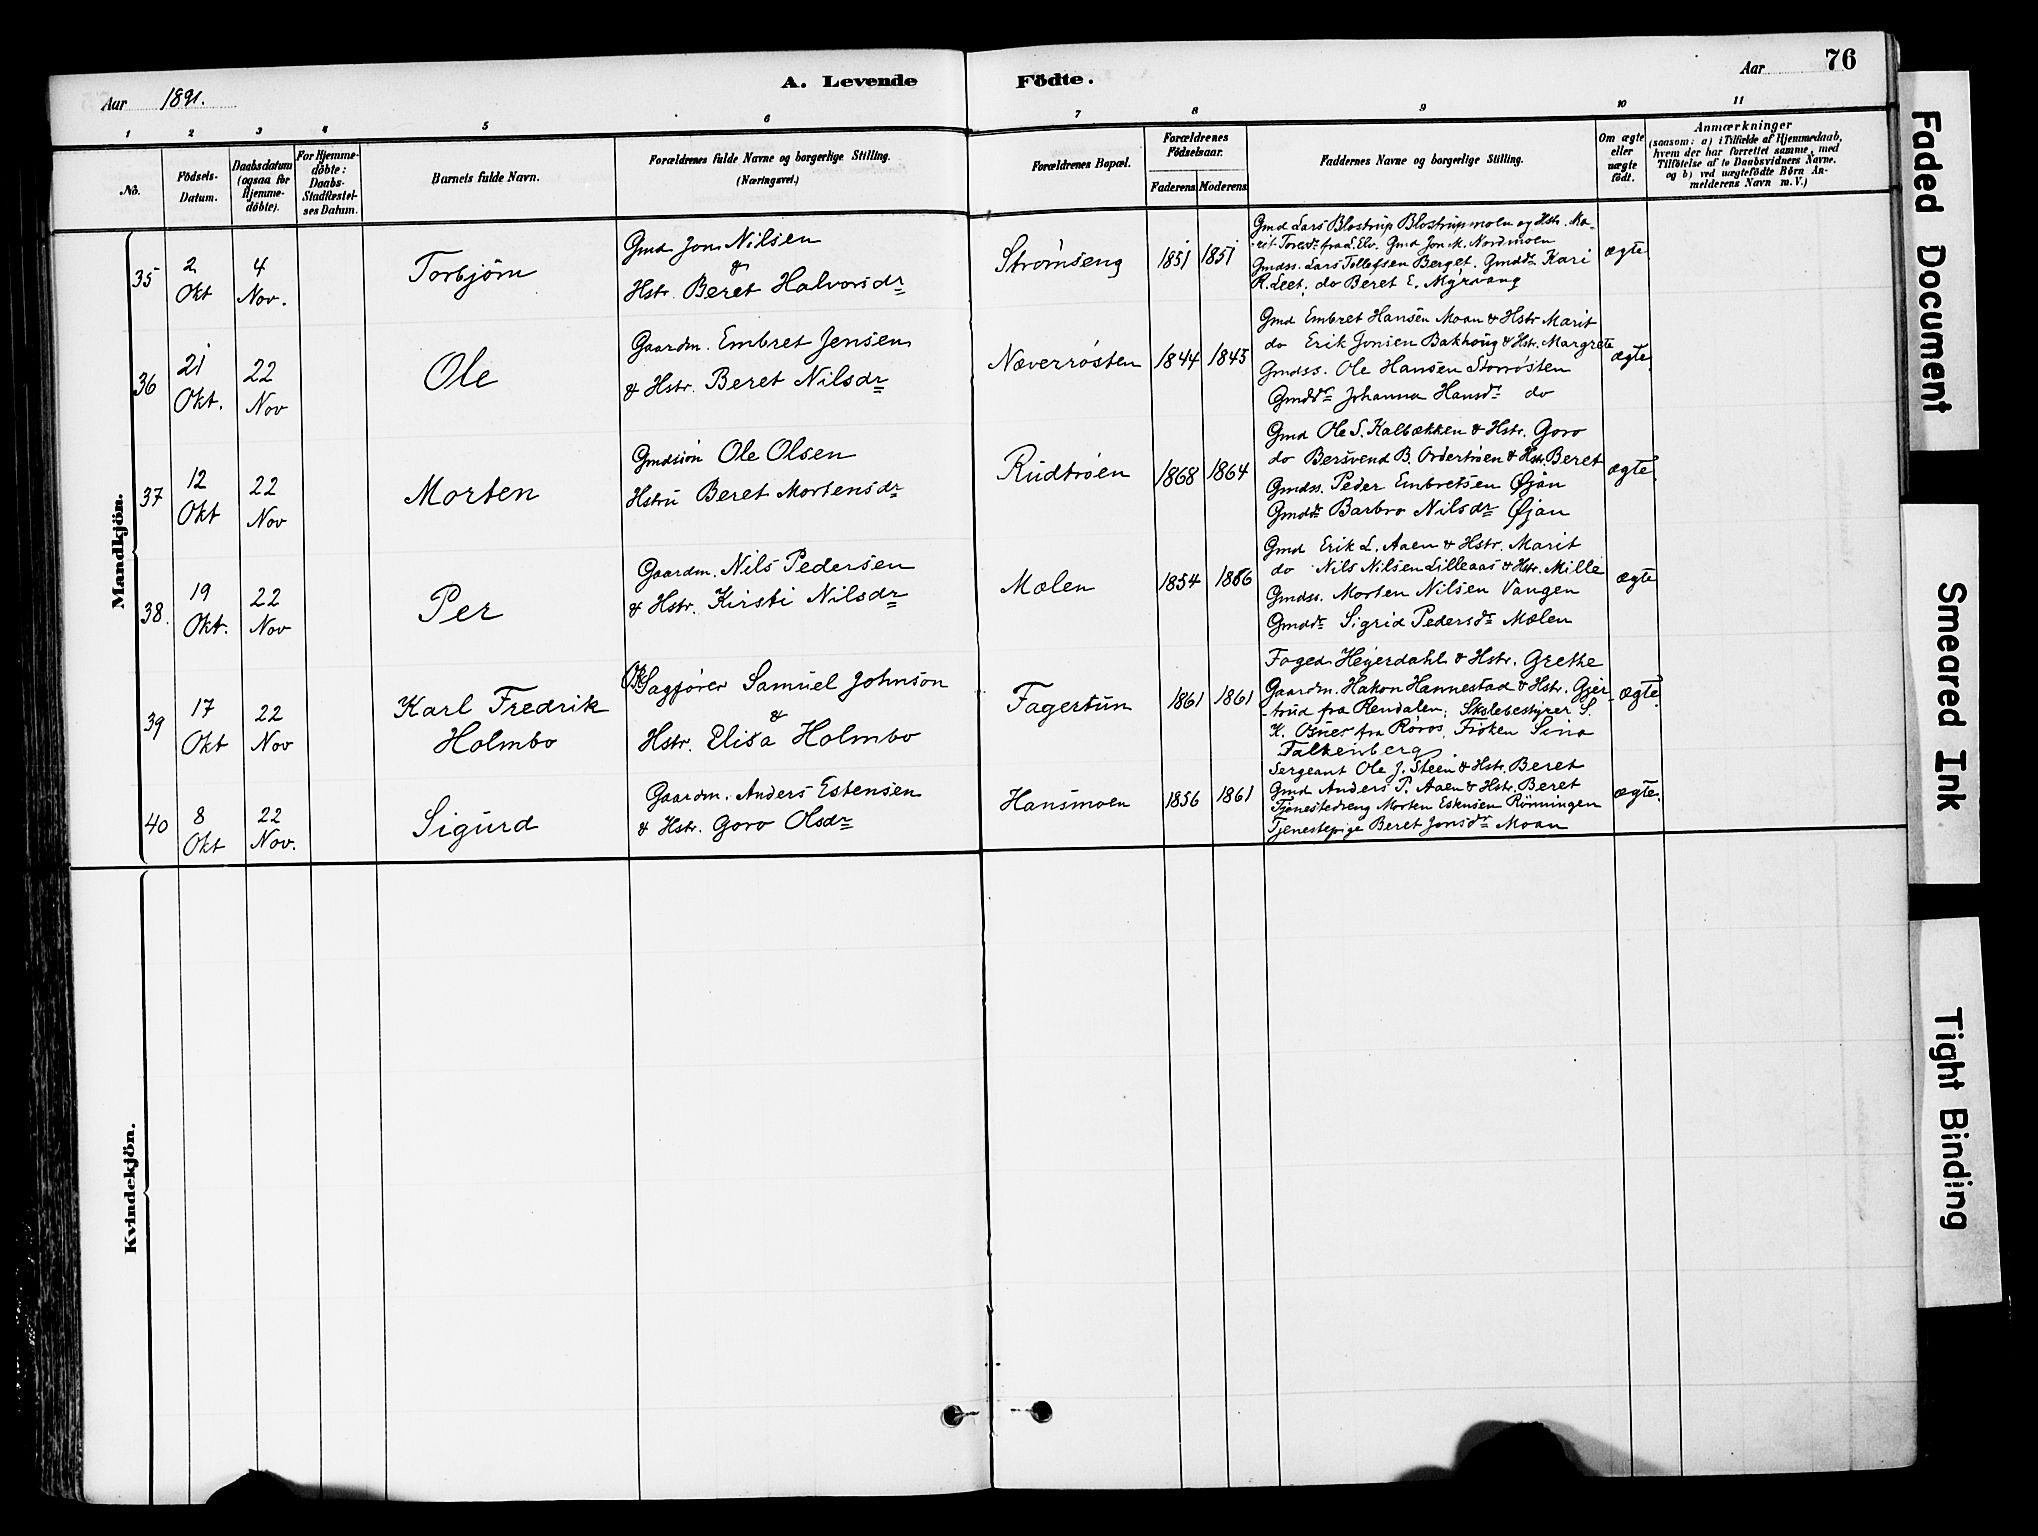 76
Aar 1891.
A. Levende Födte.
Aar
1 2 3 4 5 6 7 8 9 10 11
No.
Födsels-Datum.
Daabsdatum (ogsaa for Hjemme-döbte).
For Hjemme-döbte: Daabs-Stadfæstel-ses Datum.
Barnets fulde Navn.
Forældrenes fulde Navne og borgerlige Stilling.
(Næringsvei.)
Forældrenes Bopæl.
Forældrenes Födselsaar.
Faderens Moderens
Faddernes Navne og borgerlige Stilling.
Om ægte eller uægte födt.
Anmærkninger
(saasom: a) i Tilfælde af Hjemmedaab,
hvem der har forrettet samme, med
Tilföielse af to Daabsvidners Navne,
og b) ved uægtefödte Börn An-
melderens Navn m.V.)
Mandkjön.
35
2 Okt
4 Nov.
Torbjörn
Gmd Jon Nilsen
&
Hstr. Beret Halvorsdr
Strömseng
1851 1851
Gmd Lars Blostrup Blostrupmoen og Hstr. Ma-
rit Toresdr fra L. Elv. Gmd Jon M. Nordmoen
Gmdss. Lars Tollefsen Berget. Gmddr Kari
R. Leet. do Beret E. Myrvang
ægte
36
21 Okt.
22 Nov
Ole
Gaardm. Embret Jensen
& Hstr. Beret Nilsdr
Næverrösten
1844 1845
Gmd Embret Hansen Moan & Hstr Marit
do Erik Jonsen Bakhöug & Hstr. Margrete
Gmdss. Ole Hansen Storrösten
Gmddr Johanna Hansdr do
ægte
37
12 Okt
22 Nov
Morten
Gmdsön Ole Olsen
Hstru Beret Mortensdr
Rudtröen
1868 1864
Gmd Ole S. Kalbækken & Hstr. Goro
do Bersvend B. Ordertröen & Hstr. Beret
Gmdss. Peder Embretsen Øjan
Gmddr Barbro Nilsdr Øjan
ægte.
38.
19 Okt.
22 Nov
Per
Gaardm. Nils Pedersen
& Hstr. Kirsti Nilsdr
Mælen
1854 1856
Gmd Erik L. Aaen & Hstr. Marit
do Nils Nilsen Lilleaas & Hstr. Mille
Gmdss. Morten Nilsen Vangen
Gmddr Sigrid Pedersdr Mælen
ægte
39
17 Okt
22 Nov
Karl Fredrik
Holmbo
Sagförer Samuel Johnson
&
Hstr. Elisa Holmbo
Fagertun
1861 1861
Foged Heyerdahl & Hstr. Grethe
Gaardm. Hakon Hannestad & Hstr. Gjer-
trud fra Rendalen; Skolebestyrer S.
K. fra Röros, Fröken Sina
Falkenberg
ægte.
40
8 Okt
22 Nov.
Sigurd
Gaardm. Anders Estensen
& Hstr. Goro Olsdr
Hansmoen
1856 1861
Sergeant Ole J. Steen & Hstr. Beret
Gmd Anders P. Aaen & Hstr. Beret
Tjenestedreng Morten Estensen Rönningen
Tjenestepige Beret Jonsdr Moan
ægte.
Kvindekjön.
Faded Document
Smeared Ink
Tight Binding